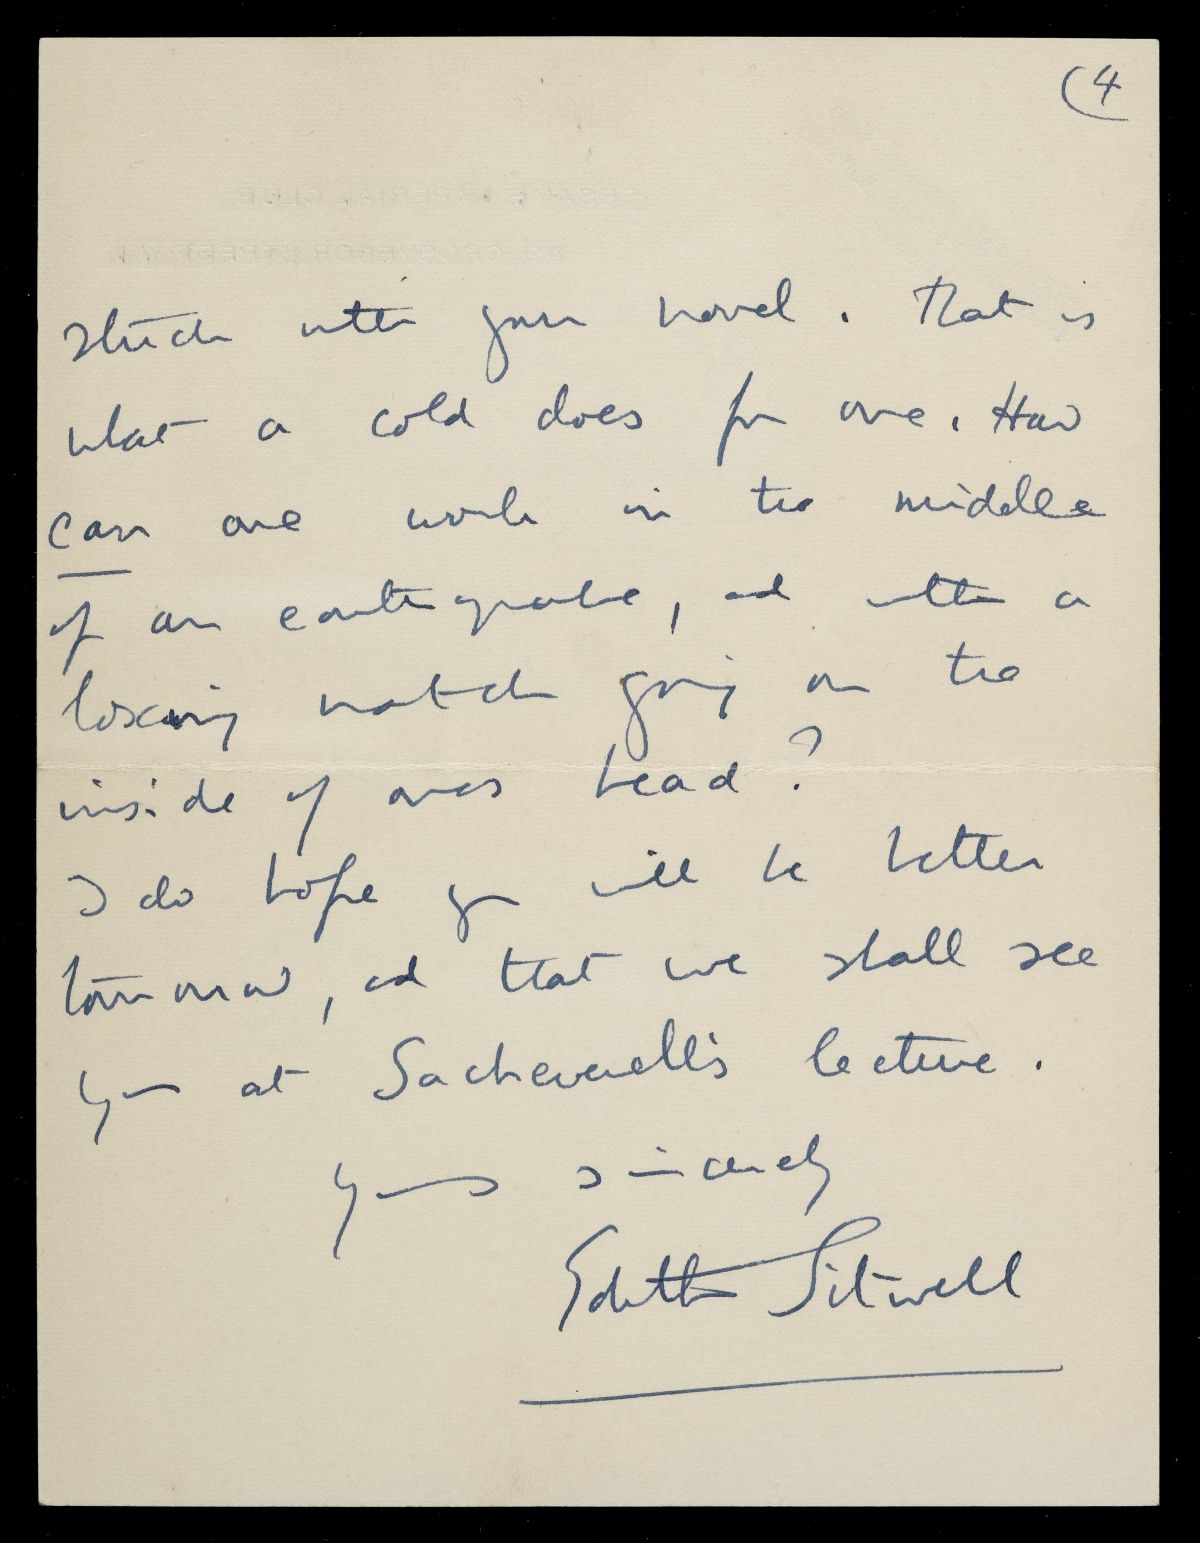 (4
stuck with your novel. That is
what a cold does for one. How
can one work in the middle
of an earthquake, and with a
boxing match going on the
inside of ones head?
I do hope you will be better
tomorrow, and that we shall see
you at Sacheverell's lecture.
Yours sincerely
Edith Sitwell